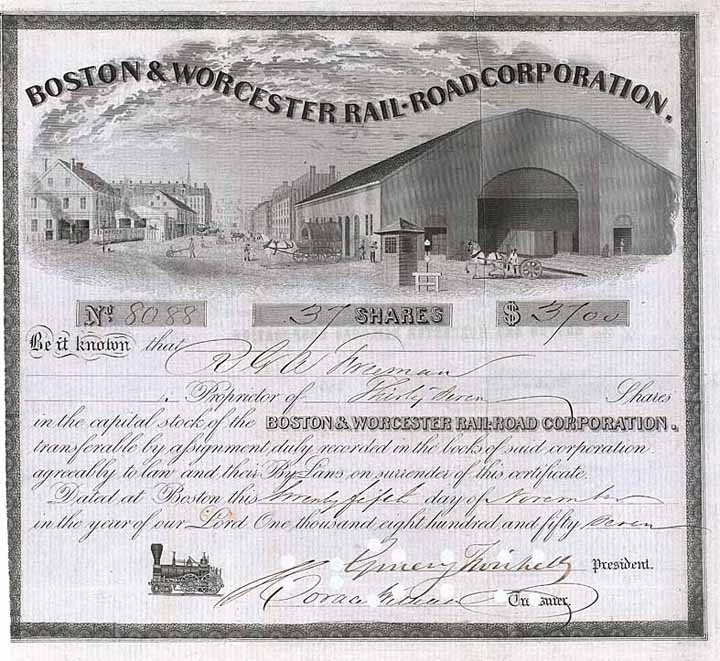 BOSTON & WORCESTER RAIL-ROAD CORPORATION.
No. 8088 37 SHARES $ 3700
Be it known that R G A Freeman
Proprietor of Thirty Seven Shares
in the capital stock of the BOSTON & WORCESTER RAIL-ROAD CORPORATION.
transferable by assignment duly recorded in the books of said corporation
agreeably to law and their By Laws, on surrender of this certificate.
Dated at Boston this Twenty fifth day of November
in the year of our Lord One thousand eight hundred and fifty seven
President.
Horace Williams Treasurer.